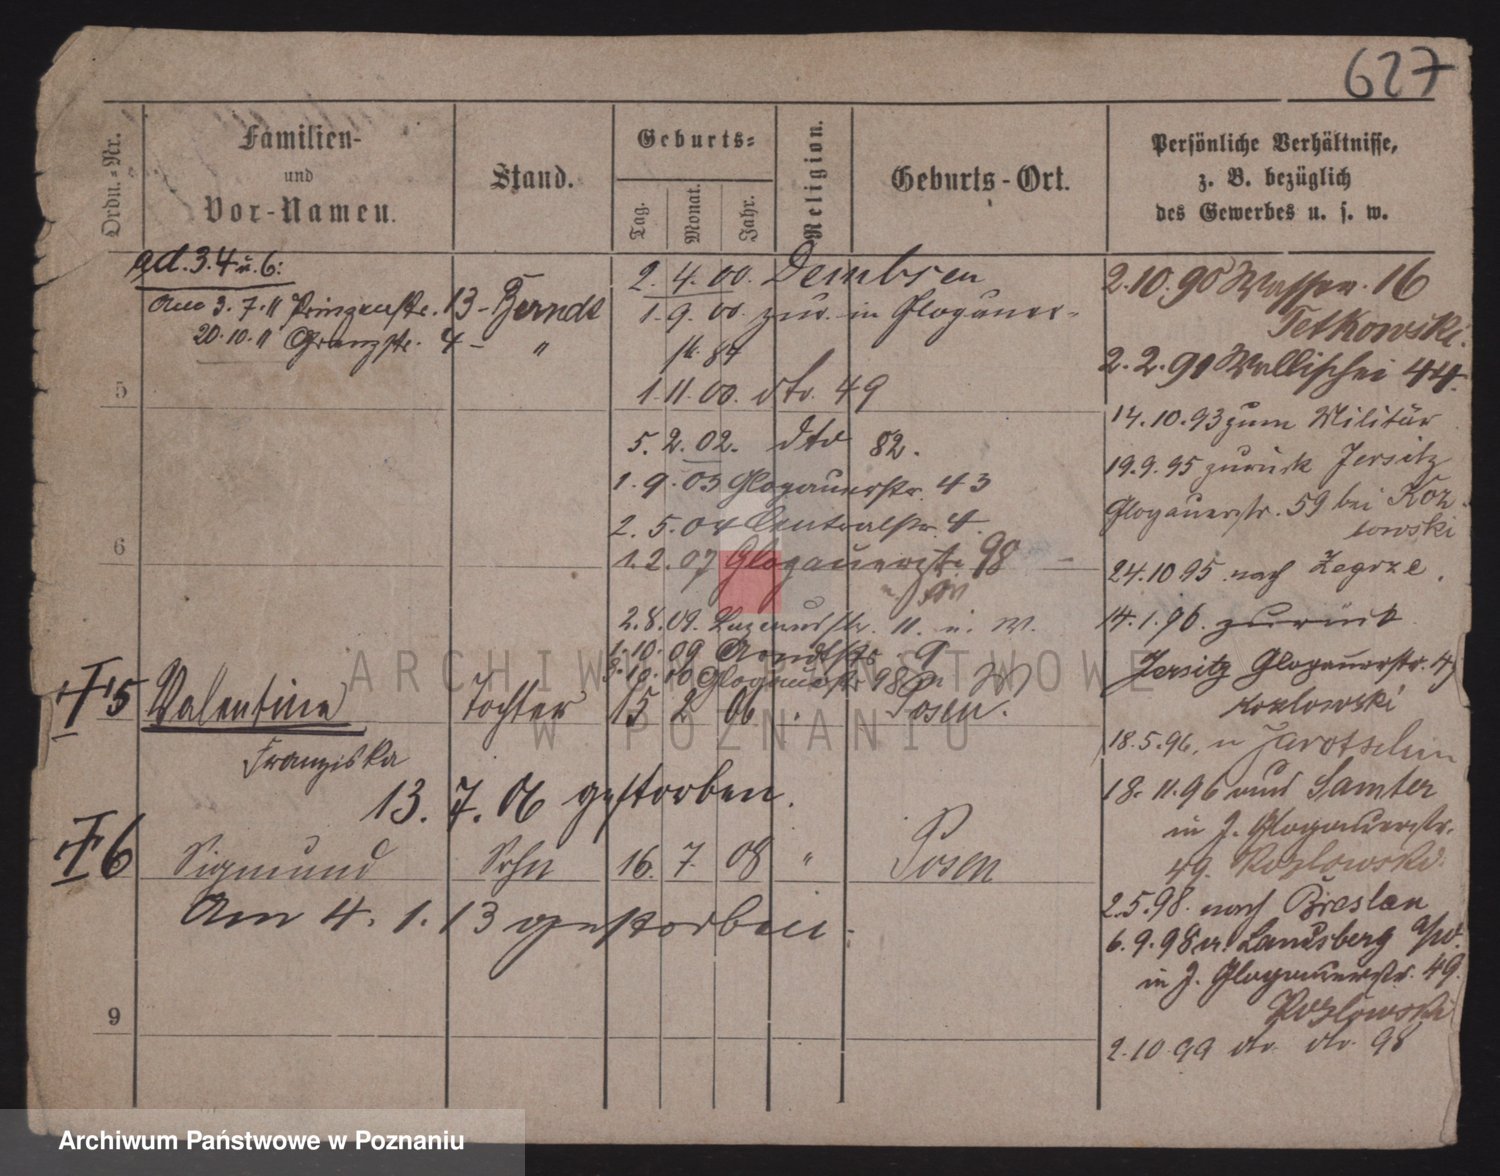 627
Ordn.-Nr.
Familien-
und
Vor-Namen.
Stand.
Geburts-
Tag.
Monat.
Jahr.
Religion.
Geburts-Ort.
Persönliche Verhältnisse,
z. B. bezüglich
des Gewerbes u. s. w.
ad. 3. 4 u. 6:
Am 3. 7. 11 Prinzenstr. 13 - Berndt
20. 10. 11 Grenzstr. 4 - "
5
6
2. 4. 00. Dembsen
1. 9. 00. zur. in Glogauer-
str. 84
1. 11. 00. dto. 49
5. 2. 02. dto 82.
1. 9. 03 Glogauerstr. 43
2. 5. 04 Centralstr. 4.
1. 2. 07 Glogauerstr. 98
2. 8. 09. 11. u. W.
1. 10. 09 9
10 Glogauerstr. 98 u W
† 5 Valentine Tochter 15 2 06 . Posen.
Franziska
13. 7. 06 gestorben.
† 6 Sigmund Sohn 16. 7. 08 " Posen
Am 4. 1. 13 gestorben.
9
2. 10. 90 Wasser. 16
Tetkowski.
2. 2. 91 Wallischei 44.
14. 10. 93 zum Militär
19. 9. 95 zurück Jersitz
Glogauerstr. 59 bei Koz-
lowski
24. 10 95 nach Zegrze.
14. 1. 96. zurück
Jersitz Glogauerstr. 49
Kozlowski
18. 5. 96. n Jarotschin
18. 11. 96 aus Samter
in J. Glogauerstr.
49. Kozlowski.
2. 5. 98. nach Breslau
6. 9. 98 v. Landsberg a/w.
in J. Glogauerstr. 49.
Kozlowski
2. 10 99 do. do. 98
ARCHIWUM PAŃSTWOWE
W POZNANIU
Archiwum Państwowe w Poznaniu